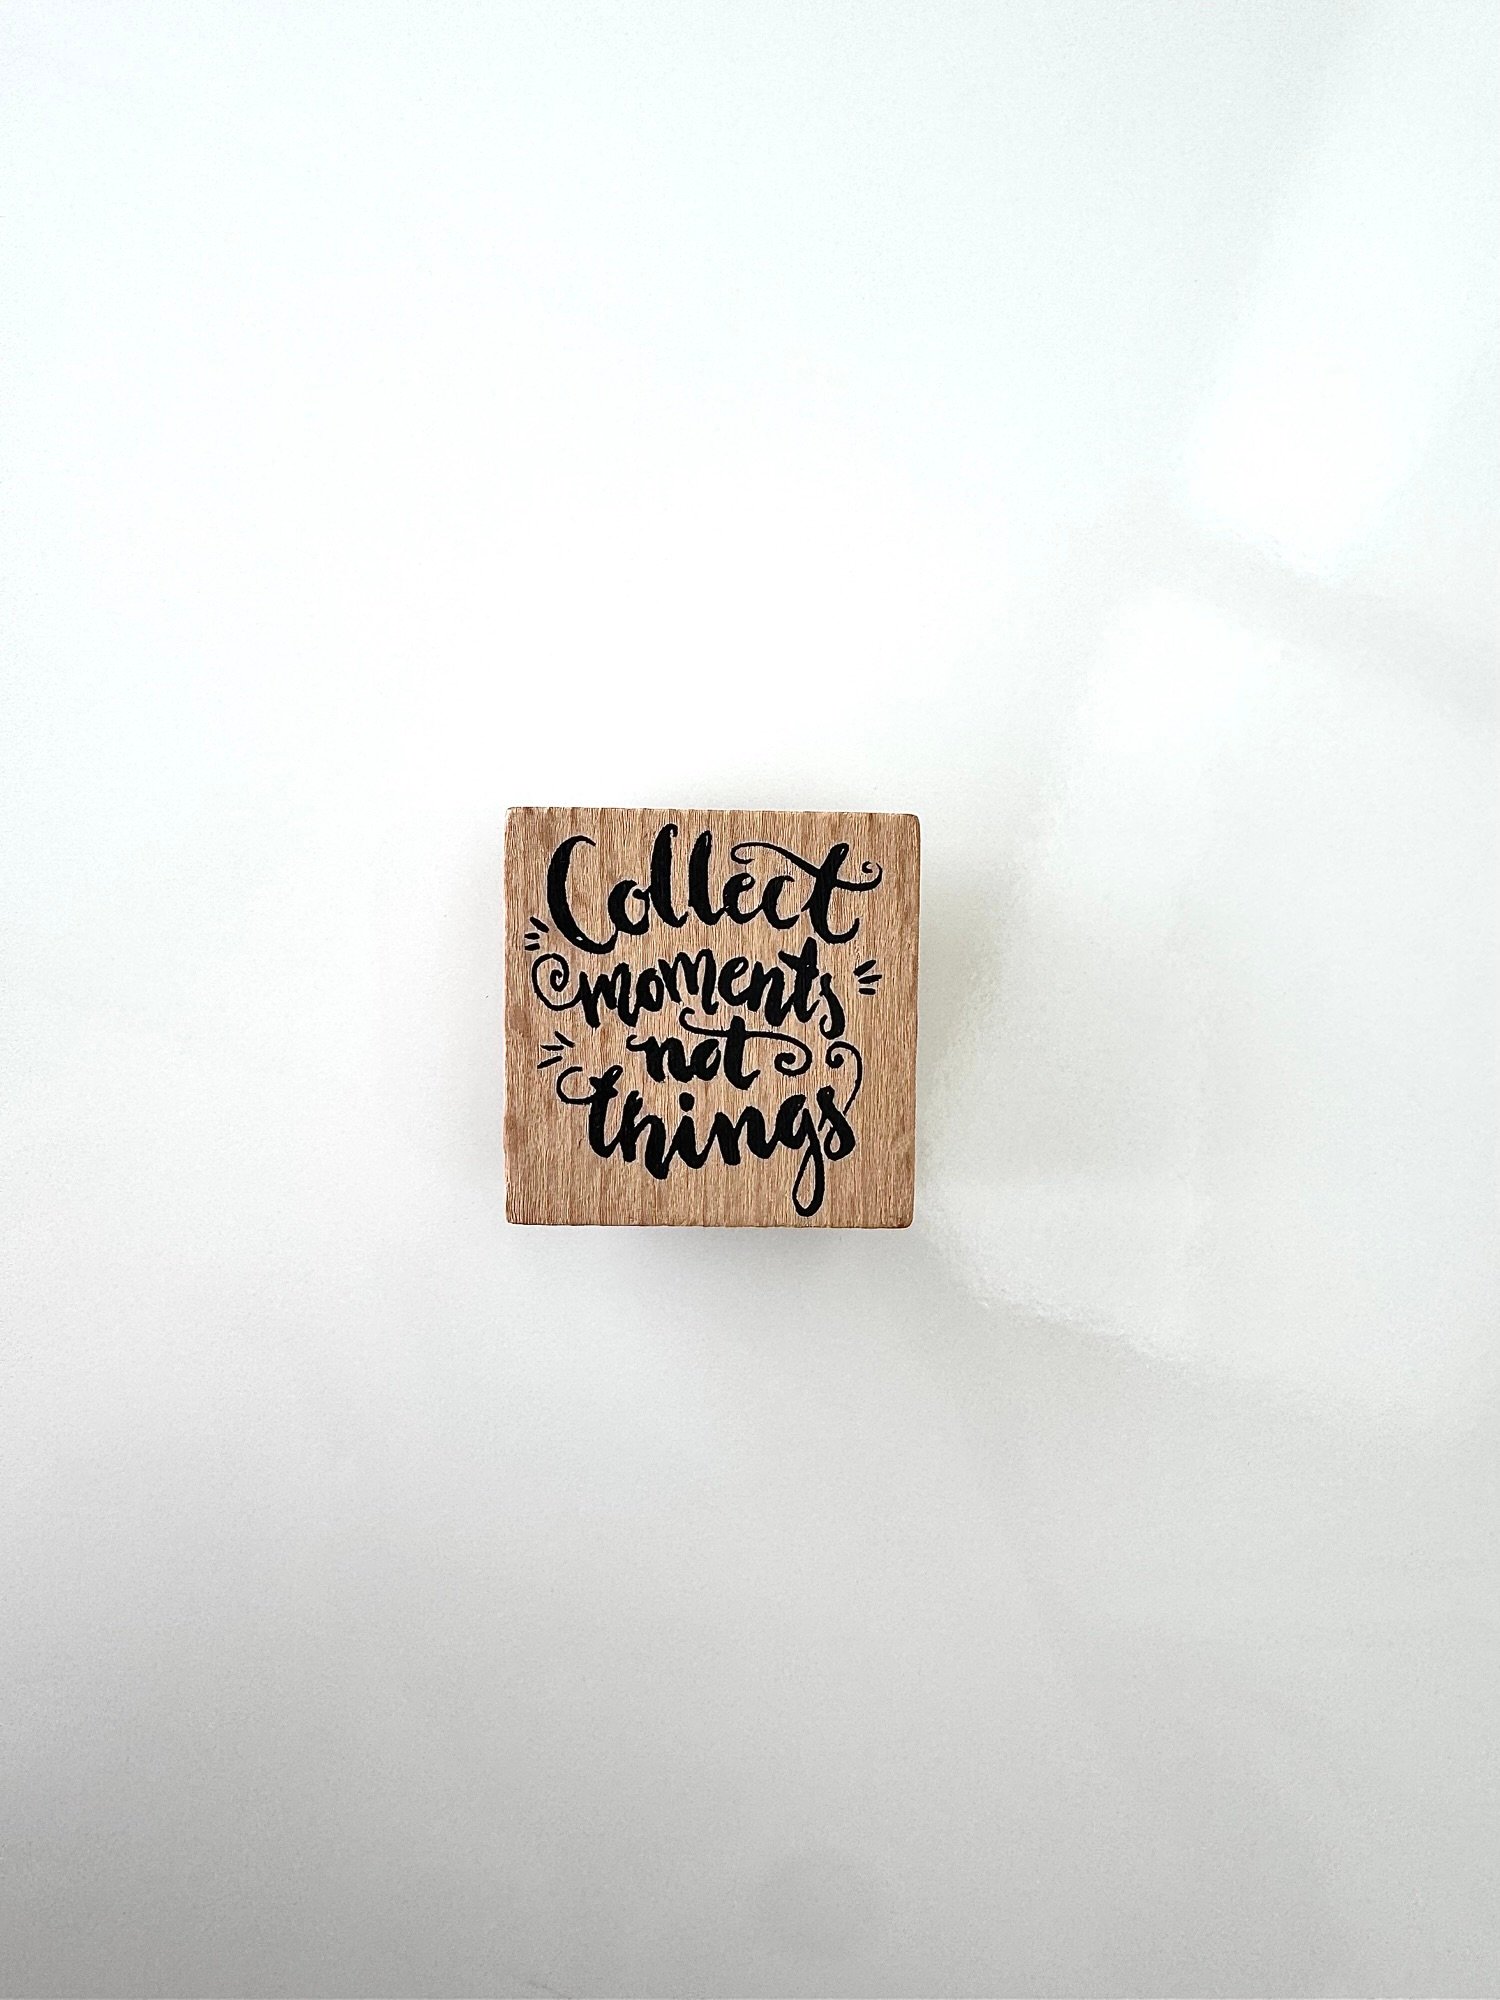 Collect
moments
not
things